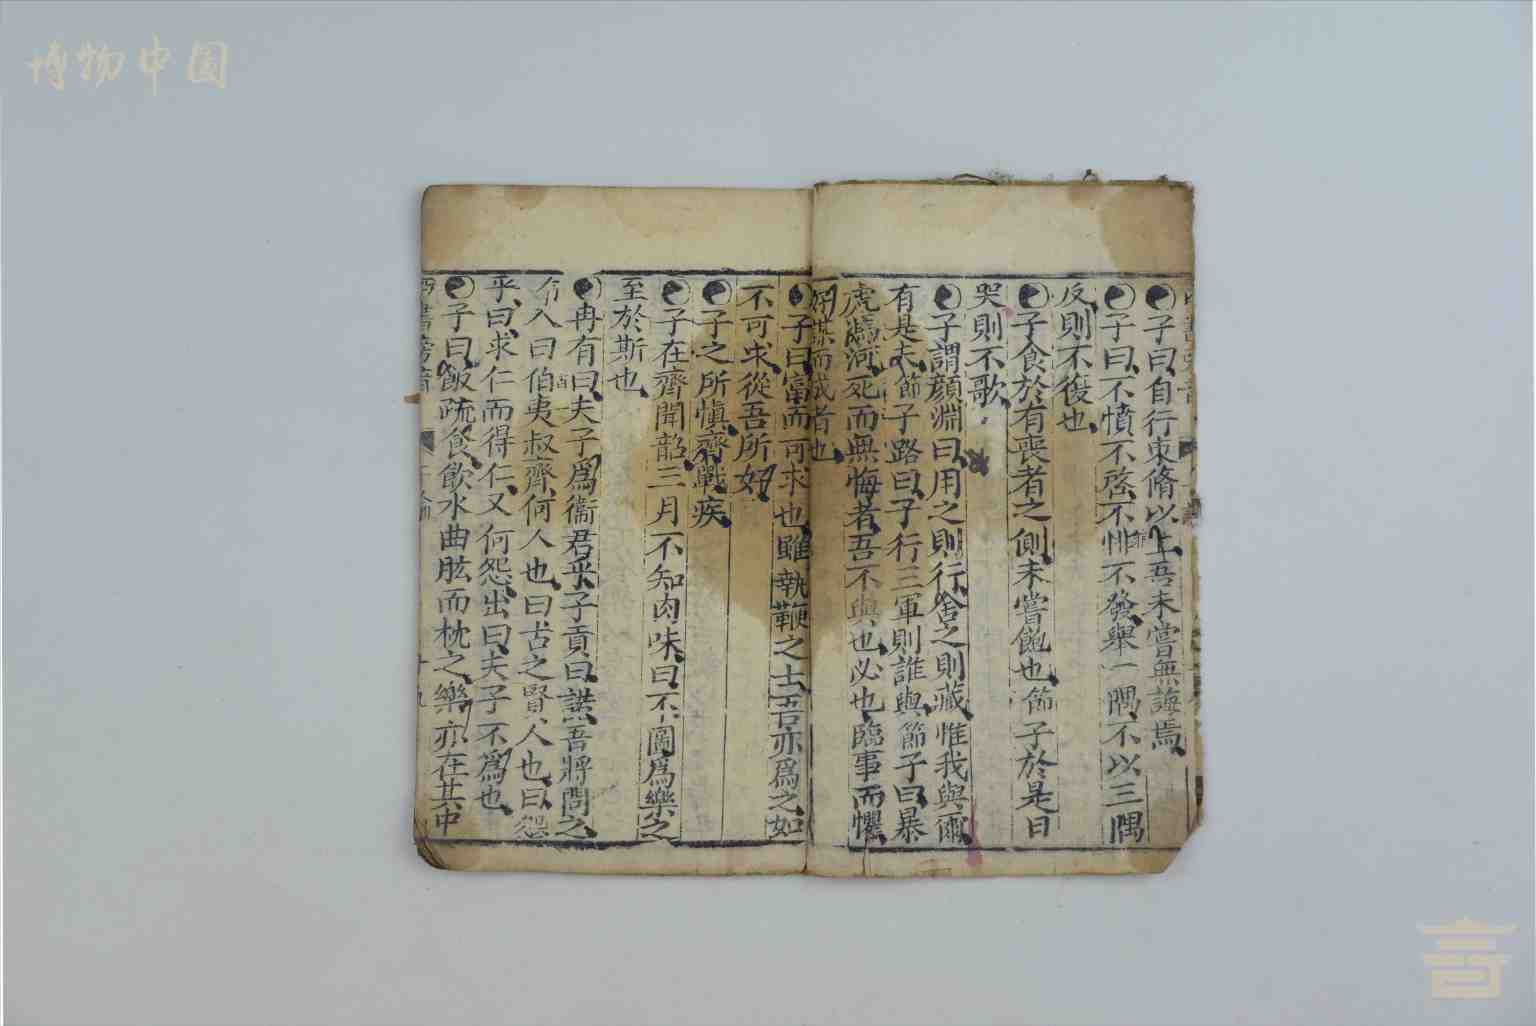 博物中国
子曰自行束脩以上吾未嘗無誨焉
子曰不憤不啓不悱不發舉一隅不以三隅
反則不復也
子食於有喪者之側未嘗飽也節子於是日
哭則不歌
子謂顏淵曰用之則行舍之則藏惟我與爾
有是夫節子路曰子行三軍則誰與節子曰暴
虎馮河死而無悔者吾不與也必也臨事而懼
好謀而成者也
子曰富而可求也雖執鞭之士吾亦爲之如
不可求從吾所好
子之所慎齊戰疾
子在齊聞韶三月不知肉味曰不圖爲樂之
至於斯也
冉有曰夫子爲衞君乎子貢曰諾吾將問之
入曰伯夷叔齊何人也曰古之賢人也曰怨
乎曰求仁而得仁又何怨出曰夫子不爲也
子曰飯疏食飲水曲肱而枕之樂亦在其中
十九